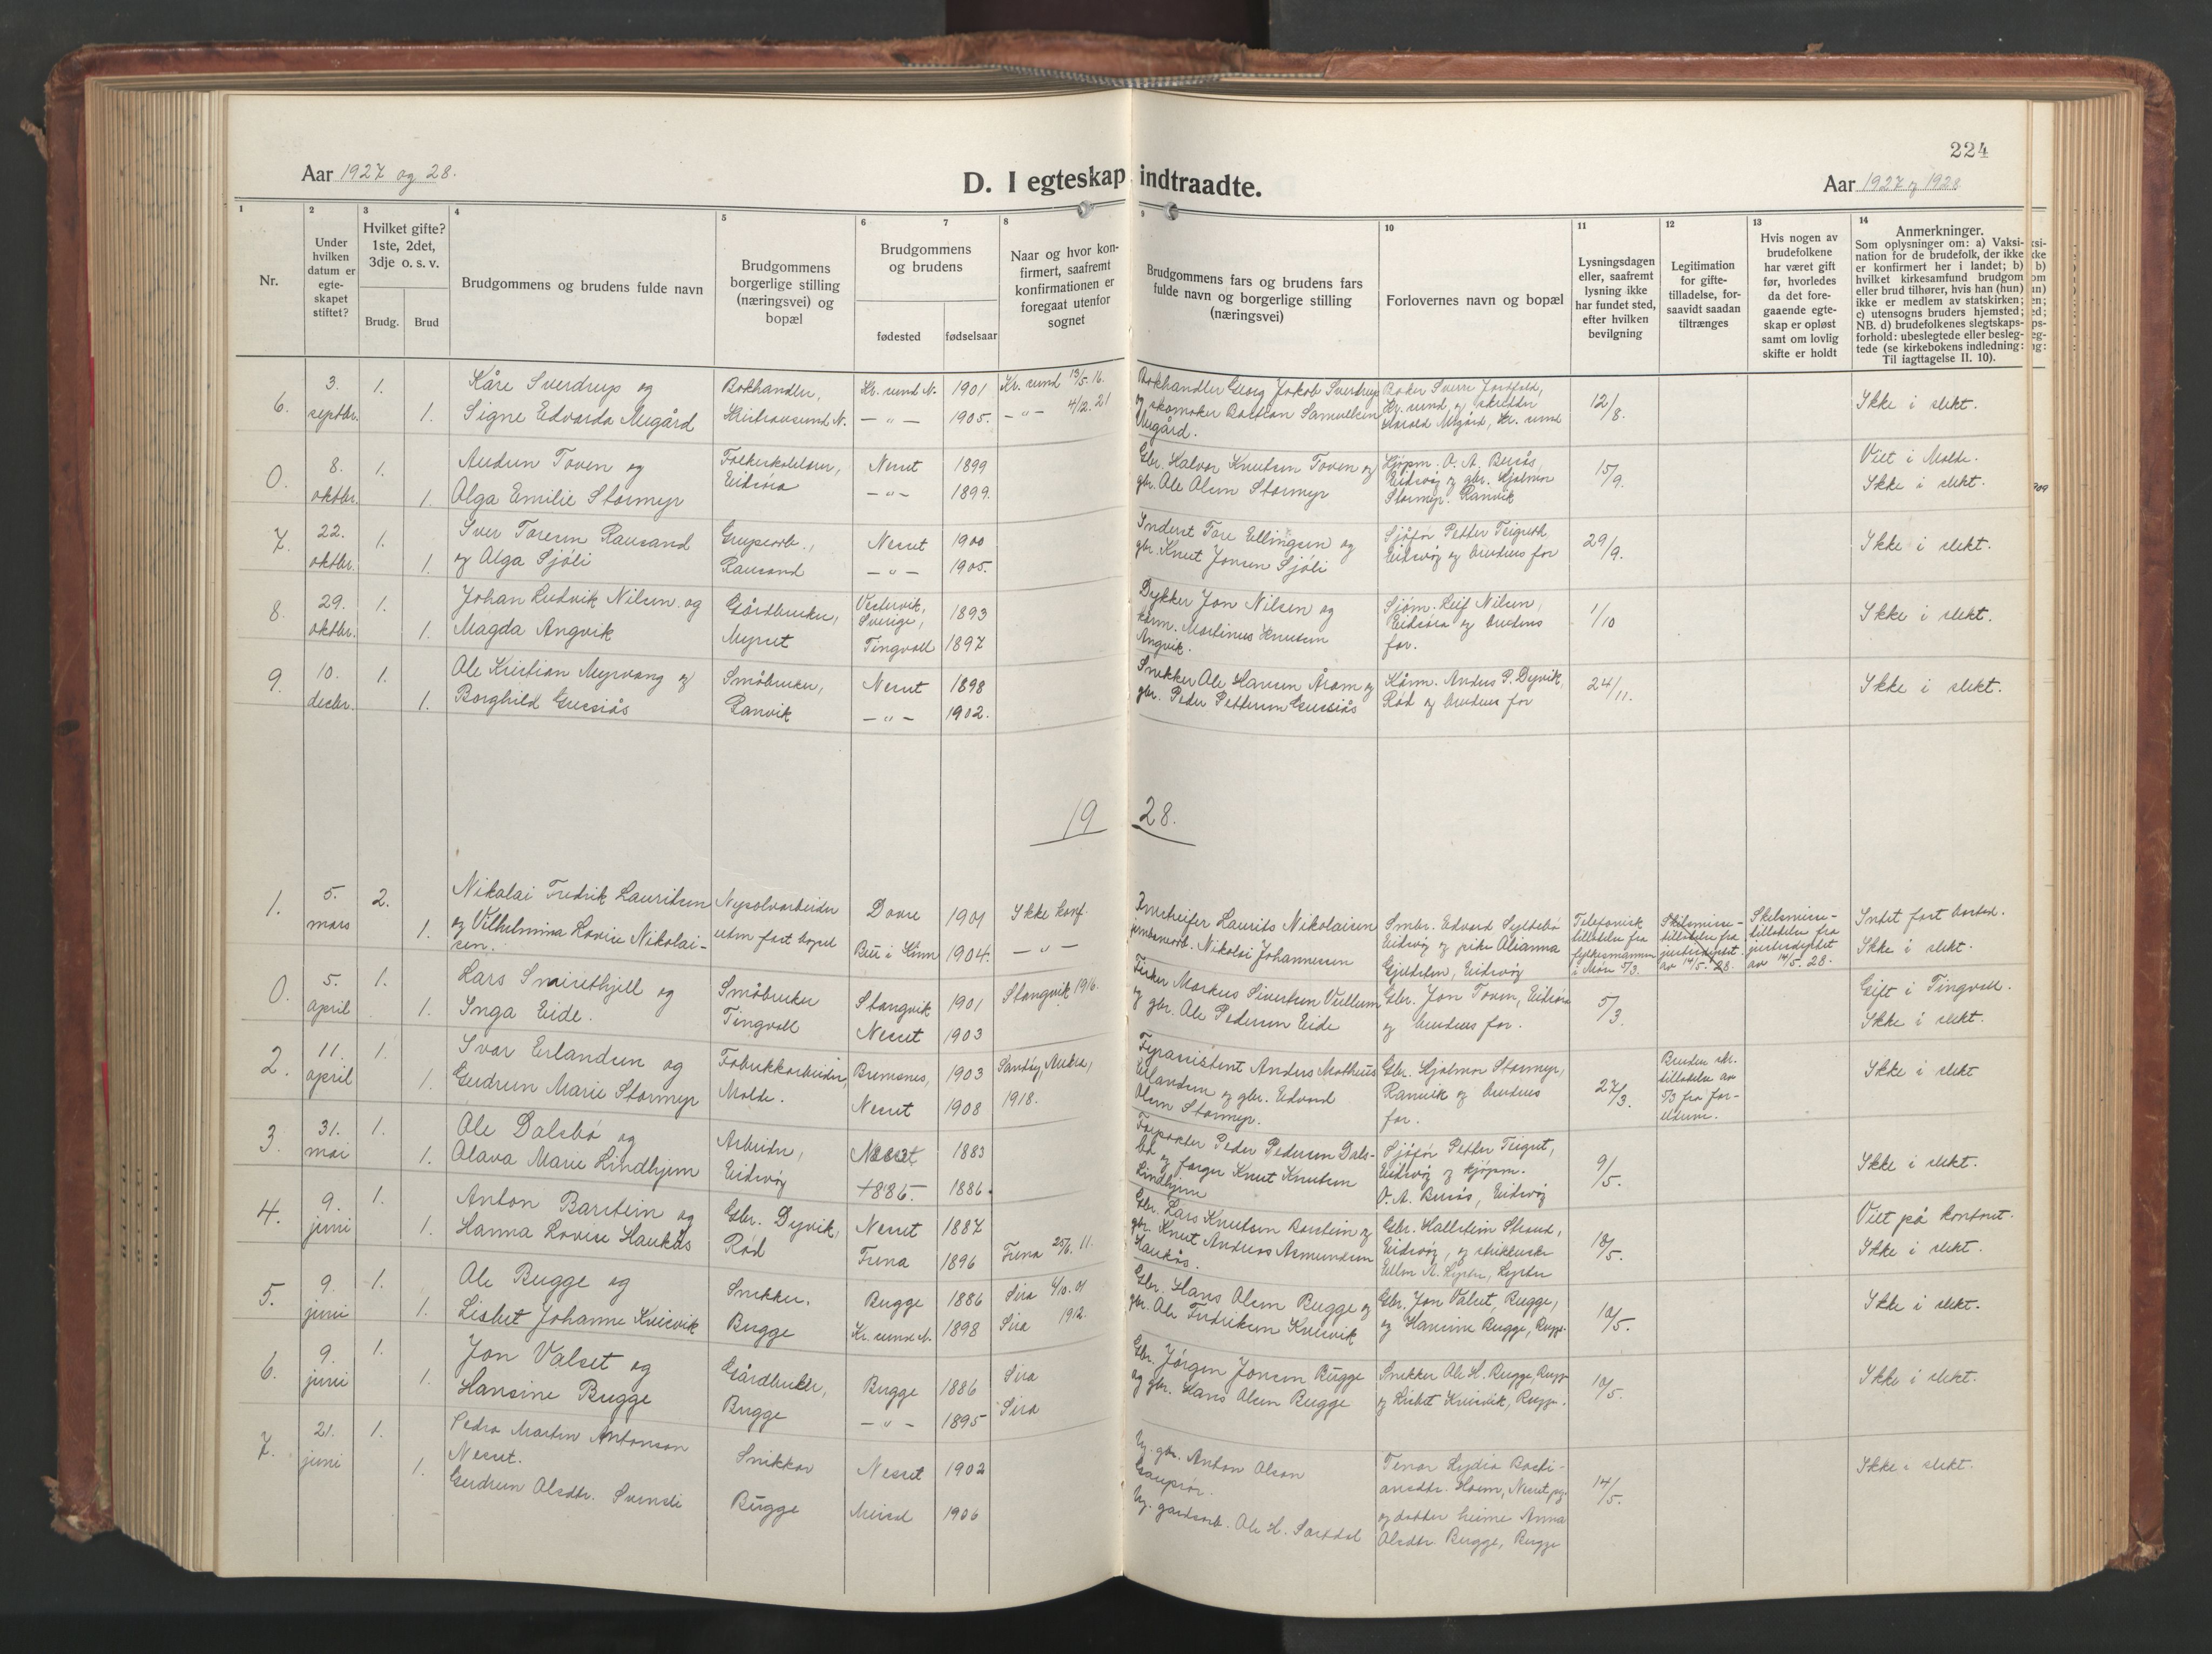 224
Aar 1927 og 28.
D. I egteskap indtraadte.
Aar 1927 og 1928
1
2
3
4
5
6
7
8
9
10
11
12
13
14
Nr.
Under hvilken datum er egte-skapet stiftet?
Hvilket gifte? 1ste, 2det, 3dje o. s. v.
Brudg.
Brud
Brudgommens og brudens fulde navn
Brudgommens borgerlige stilling (næringsvei) og bopæl
Brudgommens og brudens
fødested
fødselsaar
Naar og hvor kon-firmert, saafremt konfirmationen er foregaat utenfor sognet
Brudgommens fars og brudens fars fulde navn og borgerlige stilling (næringsvei)
Forlovernes navn og bopæl
Lysningsdagen eller, saafremt lysning ikke har fundet sted, efter hvilken bevilgning
Legitimation for gifte-tilladelse, for-saavidt saadan tiltrænges
Hvis nogen av brudefolkene har været gift før, hvorledes da det fore-gaaende egte-skap er opløst samt om lovlig skifte er holdt
Anmerkninger.
Som oplysninger om: a) Vaksi-nation for de brudefolk, der ikke er konfirmert her i landet; b) hvilket kirkesamfund brudgom eller brud tilhører, hvis han (hun) ikke er medlem av statskirken; c) utensogns bruders hjemsted; NB. d) brudefolkenes slegtskaps-forhold: ubeslegtede eller besleg-tede (se kirkebokens indledning: Til iagttagelse II. 10).
6.
3. septbr.
1.
1.
Kåre Sverdrup og
Signe Edvarda Negård
Bokhandler,
Kristiansund N.
Kr. sund N. 1901
— " — 1905.
Kr. sund 13/5. 16.
— " — 4/12. 21
Bokhandler Georg Jakob Sverdrup
og skomaker Bastian Samuelsen
Negård.
Baker Sverre
Kr. sund, og skredder
Harald Negård, Kr. sund
12/8.
Ikke i slekt.
0.
8. oktbr.
1.
1.
Audun Toven og
Olga Emilie Stormyr
Folkeskolelærer,
Eidsøra
Nesset 1899
— " — 1899.
Gbr. Halvor Knutsen Toven og
gbr. Ole Olsen Stormyr
Kjøpm. O. A. Busås,
Eidsvåg og gbr. Hjalmar
Stormyr. Ranvik
15/9.
Viet i Molde.
Ikke i slekt.
7.
22. oktbr.
1.
1.
Iver Toresen Rausand
og Olga Sjøli
Grubearb.,
Rausand
Nesset 1900
— " — 1905.
Inderst Tore Ellingsen og
gbr. Knut Jonsen Sjøli
Sjåfør Petter Teigset,
Eidsvåg og brudens far
29/9.
Ikke i slekt.
8.
29. oktbr.
1.
1.
Johan Ludvik Nilsen og
Magda Angvik
Gårdbruker,
Myrset
Vestervik, Sverige, 1893
Tingvoll 1897
Dykker Jon Nilsen og
kårm. Martinus Knutsen
Angvik.
Sjøm. Leif Nilsen,
Eidsøra og brudens
far.
1/10
Ikke i slekt.
9.
10. decbr.
1.
1.
Ole Kristian Myrvang og
Borghild Gussiås
Småbruker,
Ranvik
Nesset 1898
— " — 1902.
Snekker Ole Hansen Åram og
gbr. Peder Pettersen Gussiås
Kårm. Anders P. Dyvik,
Rød og brudens far
24/11.
Ikke i slekt.
19 28.
1.
5. mars
2.
1.
Nikolai Fredrik Lauritsen
og Vilhelmina Lovise Nikolai-
sen.
Nysølvarbeider
uten fast bopel
Dovre 1901
Bru i Kinn 1904.
Ikke konf.
— " —
Laurits Nikolaisen
jernbanearb. Nikolai Johannessen
Smbr. Edvard Syltebø
Eidsvåg og pike Olianna
Gjeldsten, Eidsvåg
Telefonisk
tilladelse fra
fylkesmannen
i Møre 5/3.
Skilsmisse-
tilladelse fra
justisdepart.
av 14/5. 28.
Skilsmisse-
tilladelse fra
justisdeptet
av 14/5. 28.
Intet fast bosted.
Ikke i slekt.
0.
5. april
1.
1.
Lars Smisethjell og
Inga Eide.
Småbruker
Tingvoll
Stangvik 1901
Nesset 1903
Stangvik 1916.
Fisker Markus Sivertsen Vullum
og gbr. Ole Pedersen Eide
Gbr. Jon Toven, Eidsøra
og brudens far.
5/3.
Gift i Tingvoll.
Ikke i slekt.
2.
11. april
1.
1.
Ivar Erlandsen og
Gudrun Marie Stormyr
Fabrikkarbeider,
Molde.
Bremsnes, 1903
Nesset 1908
Sandøy, Aukra,
1918.
Fyrassistent Anders Matheus
Erlandsen og gbr. Edvard
Olsen Stormyr.
Gbr. Hjalmar Stormyr,
Ranvik og brudens
far.
27/3.
Bruden skr.
tilladelse av
5/3 fra for-
eldrene.
Ikke i slekt
3.
31. mai
1.
1.
Ole Dalsbø og
Olava Marie Lindhjem
Arbeider,
Eidsvåg
Nesset 1883
1886. 1886.
Forpakter Peder Pedersen Dals-
bø og farger Knut Knutsen
Lindhjem
Sjåfør Petter Teigset,
Eidsvåg og kjøpm.
O. A. Busås, Eidsvåg
9/5.
Ikke i slekt.
4.
9. juni
1.
1.
Anton Barstein og
Hanna Lovise Haukås
Gbr. Dyvik,
Rød
Nesset 1887
Frena 1896
Frena 25/6. 11.
Gbr. Lars Knutsen Barstein og
gbr. Knut Andreas Asmundsen
Haukås.
Gbr. Hallstein Strand,
Eidsvåg, og
Ellen A.
18/5.
Viet på kontoret.
Ikke i slekt.
5.
9. juni
1.
1.
Ole Bugge og
Lisbet Johanne Kvisvik
Snekker.
Bugge
Bugge 1886
Kr. sund N. 1898
Sira 6/10. 01
Sira 1912.
Gbr. Hans Olsen Bugge og
gbr. Ole Fredriksen Kvisvik
Gbr. Jon Valset, Bugge,
og Hansine Bugge, Bugge.
10/5.
Ikke i slekt.
6.
9. juni
1.
1.
Jon Valset og
Hansine Bugge
Gårdbruker,
Bugge
Bugge 1886
— " — 1895
Sira
Sira
Gbr. Jørgen Jonsen Bugge
og gbr. Hans Olsen Bugge
Snekker Ole H. Bugge, Bugge
og Lisbet Kvisvik, Bugge.
10/5.
Ikke i slekt.
7.
21. juni
1.
1.
Pedro Martin Antonson
Nesset.
Gudrun Olsdtr. Svensli
Snikkar
Bugge
Nesset 1902
Meisal 1906
Ug. gbr. Anton Olson
Gauprør.
Ug. gardsarb. Ole H. Sartdal
Tenar Lydia Basti-
ansdtr. Hoem, Nesset pgd.
og dotter heime Anna
Olsdtr. Bugge, Bugge
14/5.
Ikke i slekt.